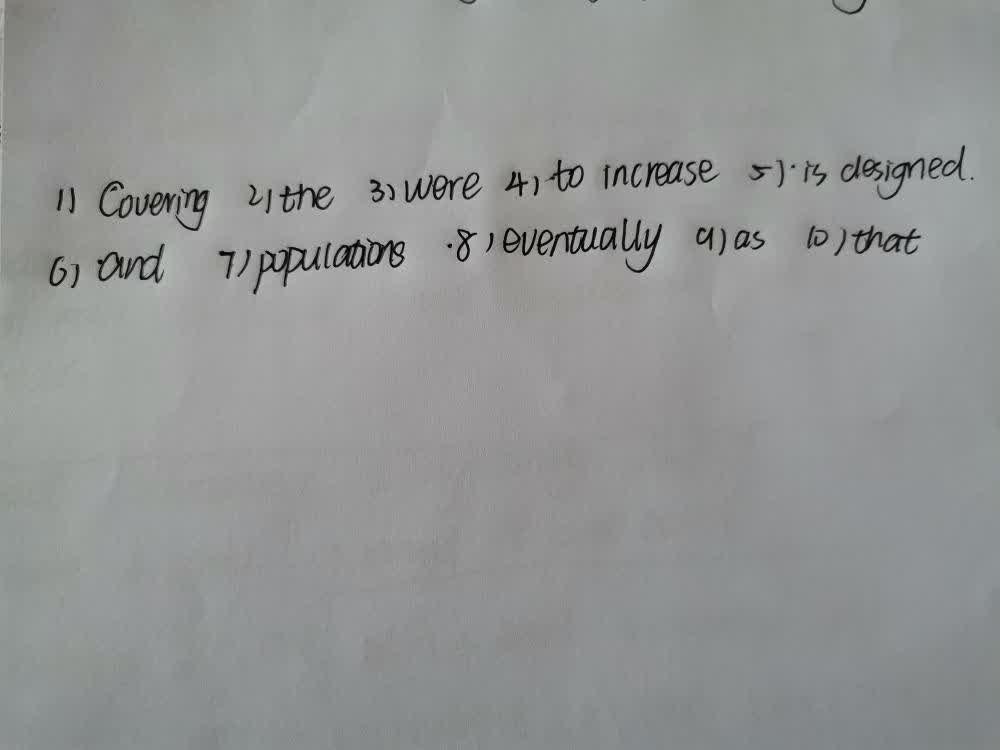 1) Covering 2) the 3) were 4) to increase 5) is designed.
6) and 7) populations 8) eventually 9) as 10) that